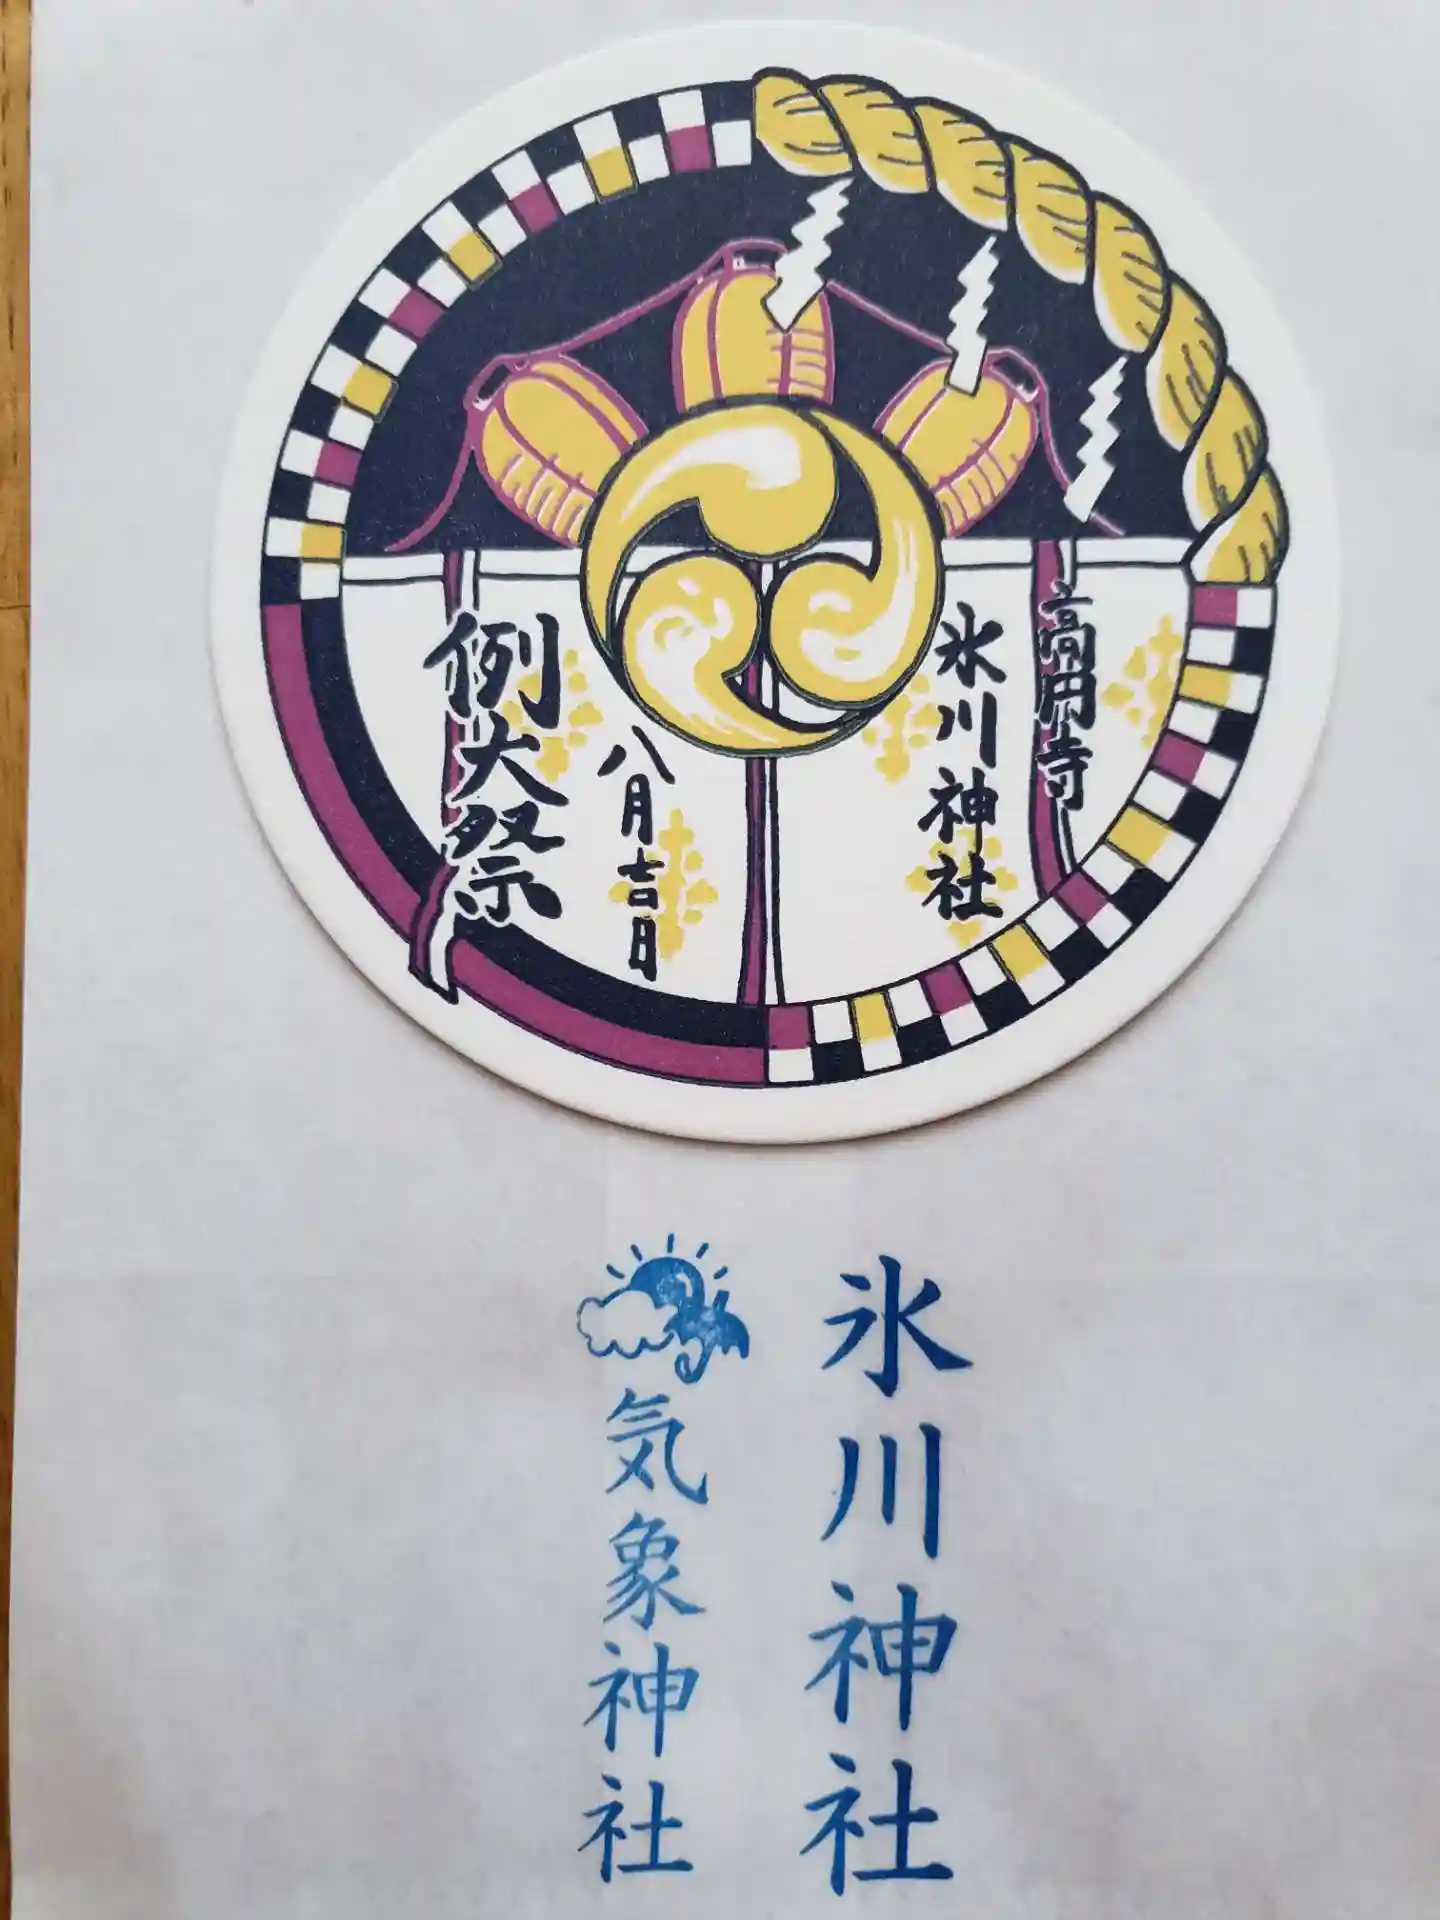 高円寺
氷川神社
八月吉日
例大祭
氷川神社
気象神社